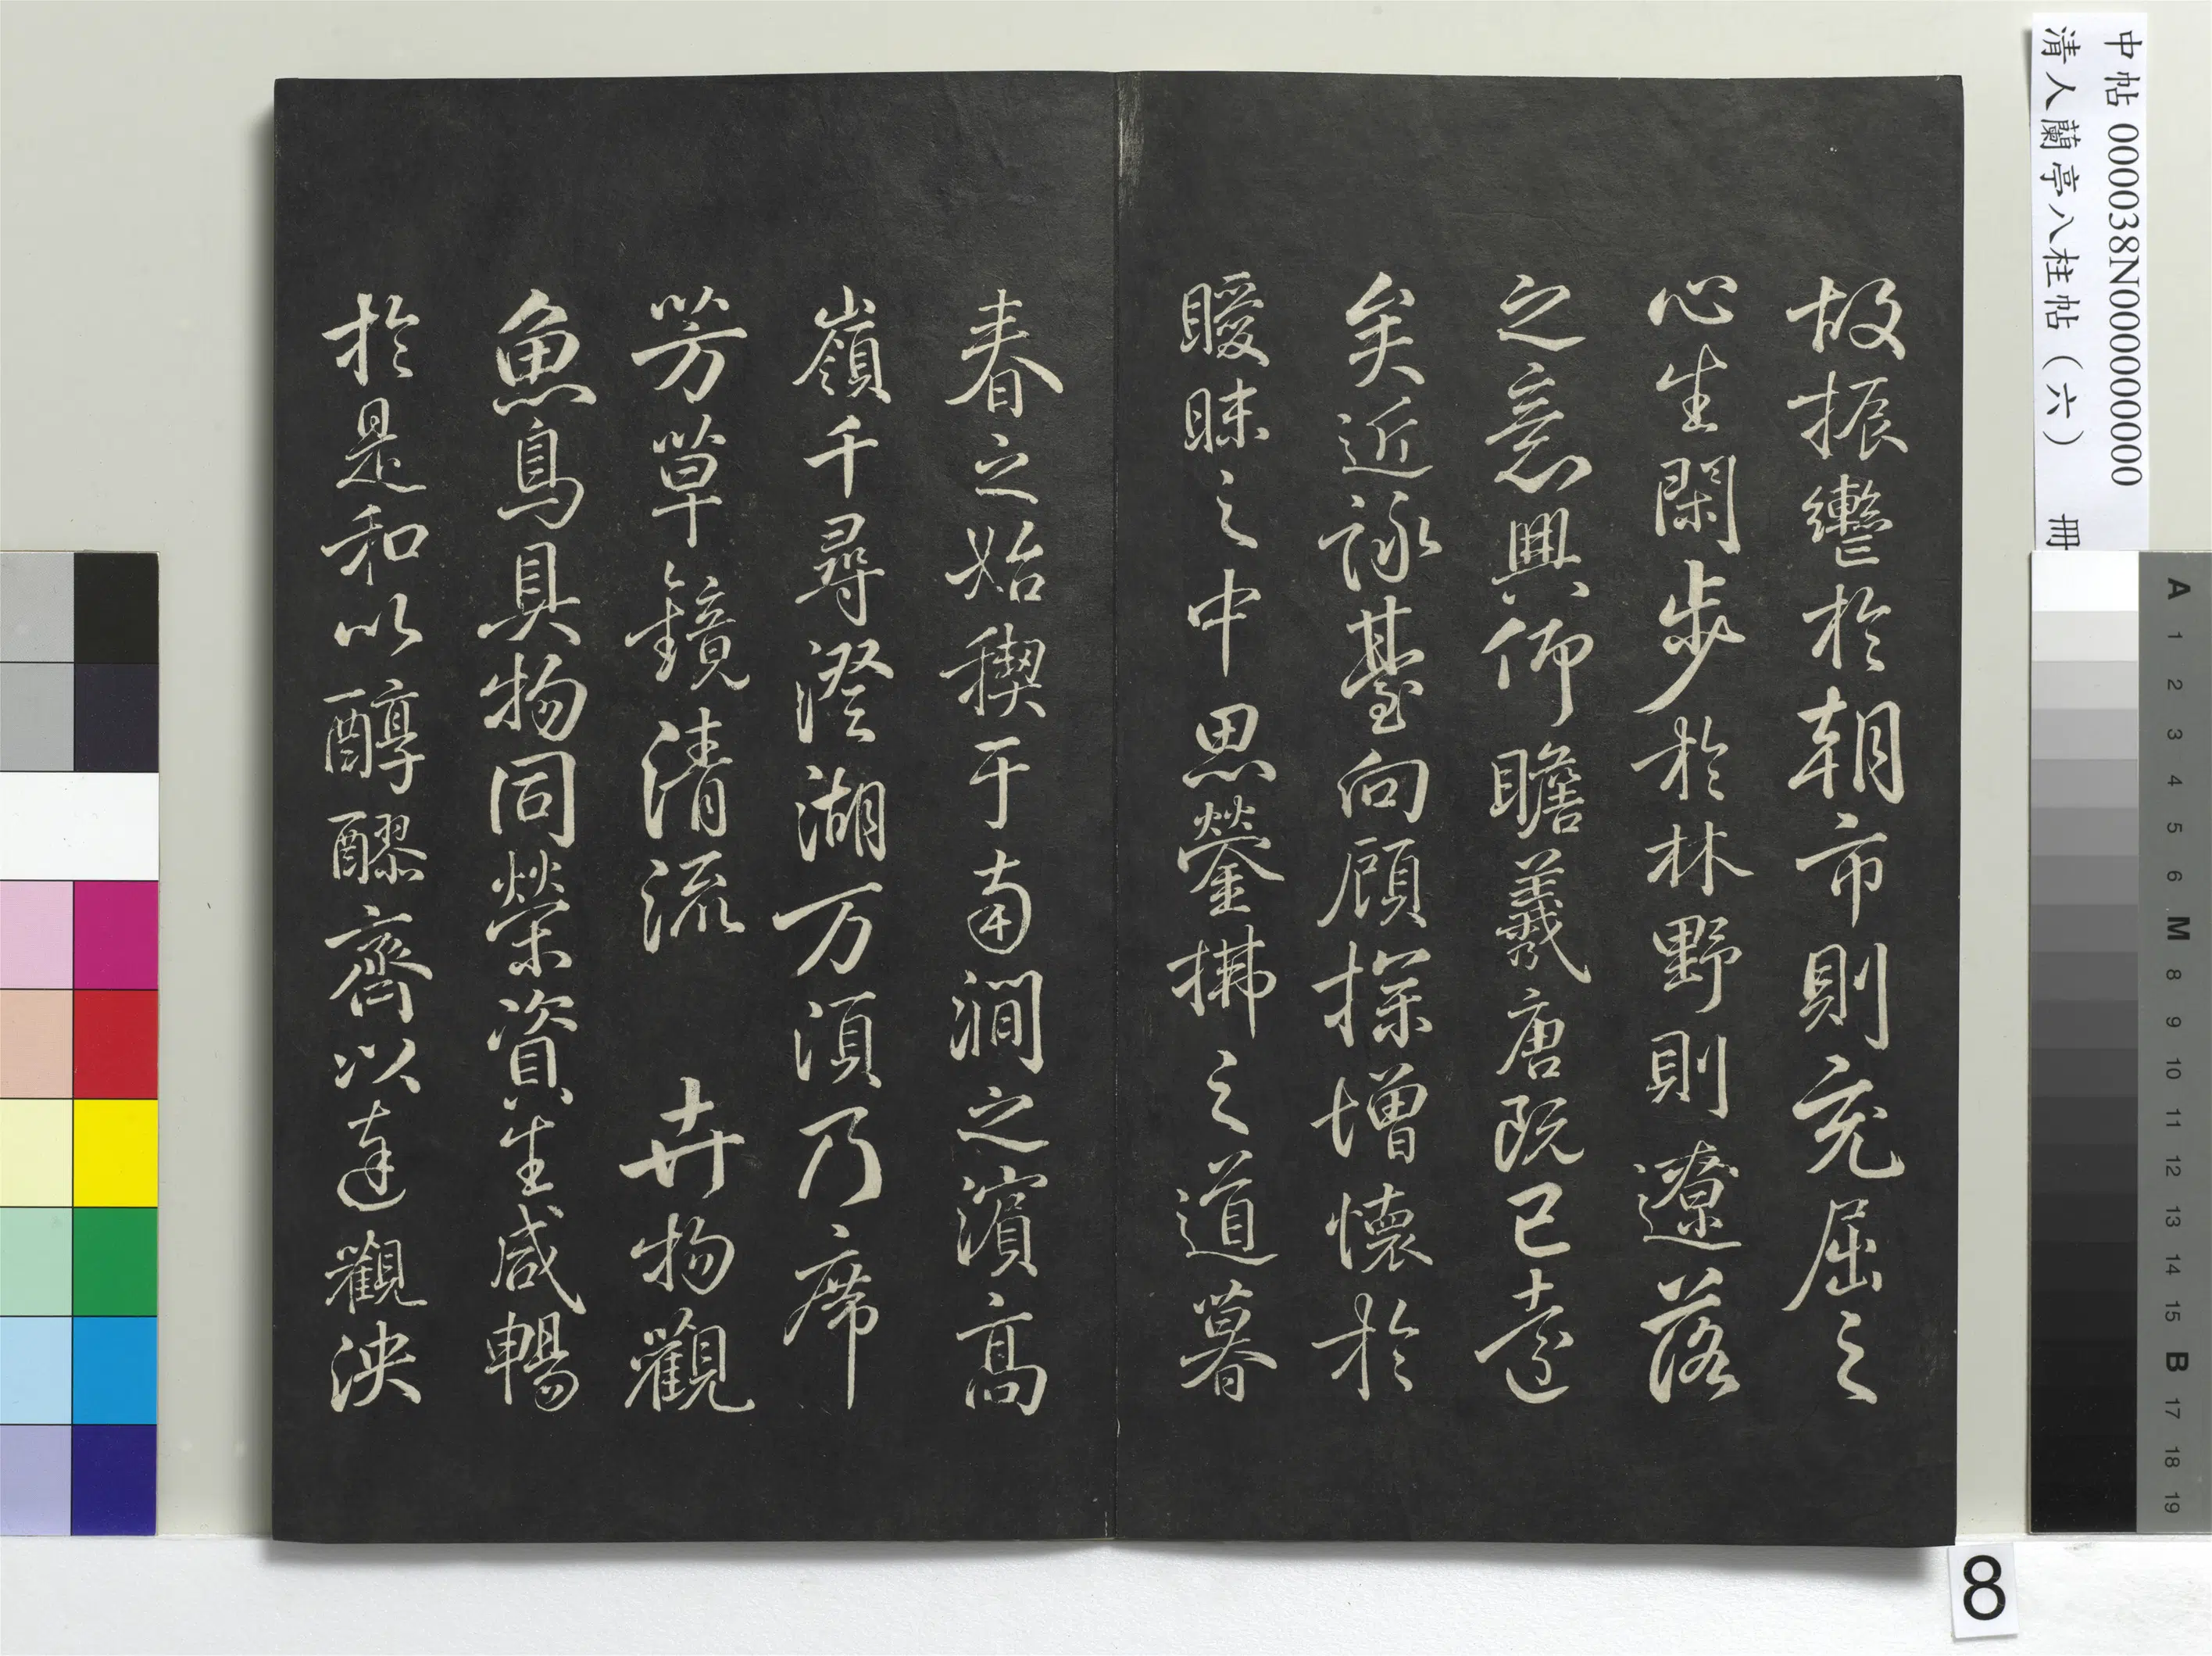 故振轡於朝市則充屈之
心生閑步於林野則遼落
之意興仰瞻羲唐既已遠
矣近詠臺向顧探增懷於
曖昧之中思鎣拂之道暮
春之始禊于南澗之濱高
嶺千尋澄湖万湏乃席
芳草鏡清流 卉物觀
魚鳥具物同榮資生咸暢
於是和以醇醪齊以達觀泱
中帖 000038N000000000
清人蘭亭八柱帖(六) 冊
A 1 2 3 4 5 6 M 8 9 10 11 12 13 14 15 B 17 18 19
8